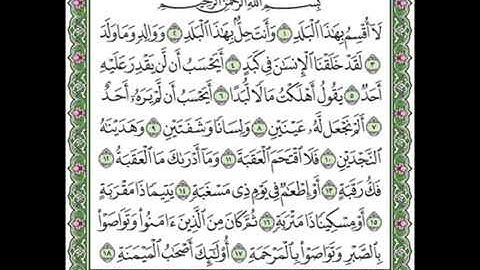 بِسْمِ ٱللَّهِ ٱلرَّحْمَٰنِ ٱلرَّحِيمِ
لَآ أُقْسِمُ بِهَٰذَا ٱلْبَلَدِ ١ وَأَنتَ حِلٌّۢ بِهَٰذَا ٱلْبَلَدِ ٢ وَوَالِدٍ وَمَا وَلَدَ
٣ لَقَدْ خَلَقْنَا ٱلْإِنسَٰنَ فِى كَبَدٍ ٤ أَيَحْسَبُ أَن لَّن يَقْدِرَ عَلَيْهِ
أَحَدٌ ٥ يَقُولُ أَهْلَكْتُ مَالًا لُّبَدًا ٦ أَيَحْسَبُ أَن لَّمْ يَرَهُۥٓ أَحَدٌ
٧ أَلَمْ نَجْعَل لَّهُۥ عَيْنَيْنِ ٨ وَلِسَانًا وَشَفَتَيْنِ ٩ وَهَدَيْنَٰهُ
ٱلنَّجْدَيْنِ ١٠ فَلَا ٱقْتَحَمَ ٱلْعَقَبَةَ ١١ وَمَآ أَدْرَىٰكَ مَا ٱلْعَقَبَةُ ١٢
فَكُّ رَقَبَةٍ ١٣ أَوْ إِطْعَٰمٌ فِى يَوْمٍ ذِى مَسْغَبَةٍ ١٤ يَتِيمًا ذَا مَقْرَبَةٍ
١٥ أَوْ مِسْكِينًا ذَا مَتْرَبَةٍ ١٦ ثُمَّ كَانَ مِنَ ٱلَّذِينَ ءَامَنُوا۟ وَتَوَاصَوْا۟
بِٱلصَّبْرِ وَتَوَاصَوْا۟ بِٱلْمَرْحَمَةِ ١٧ أُو۟لَٰٓئِكَ أَصْحَٰبُ ٱلْمَيْمَنَةِ ١٨